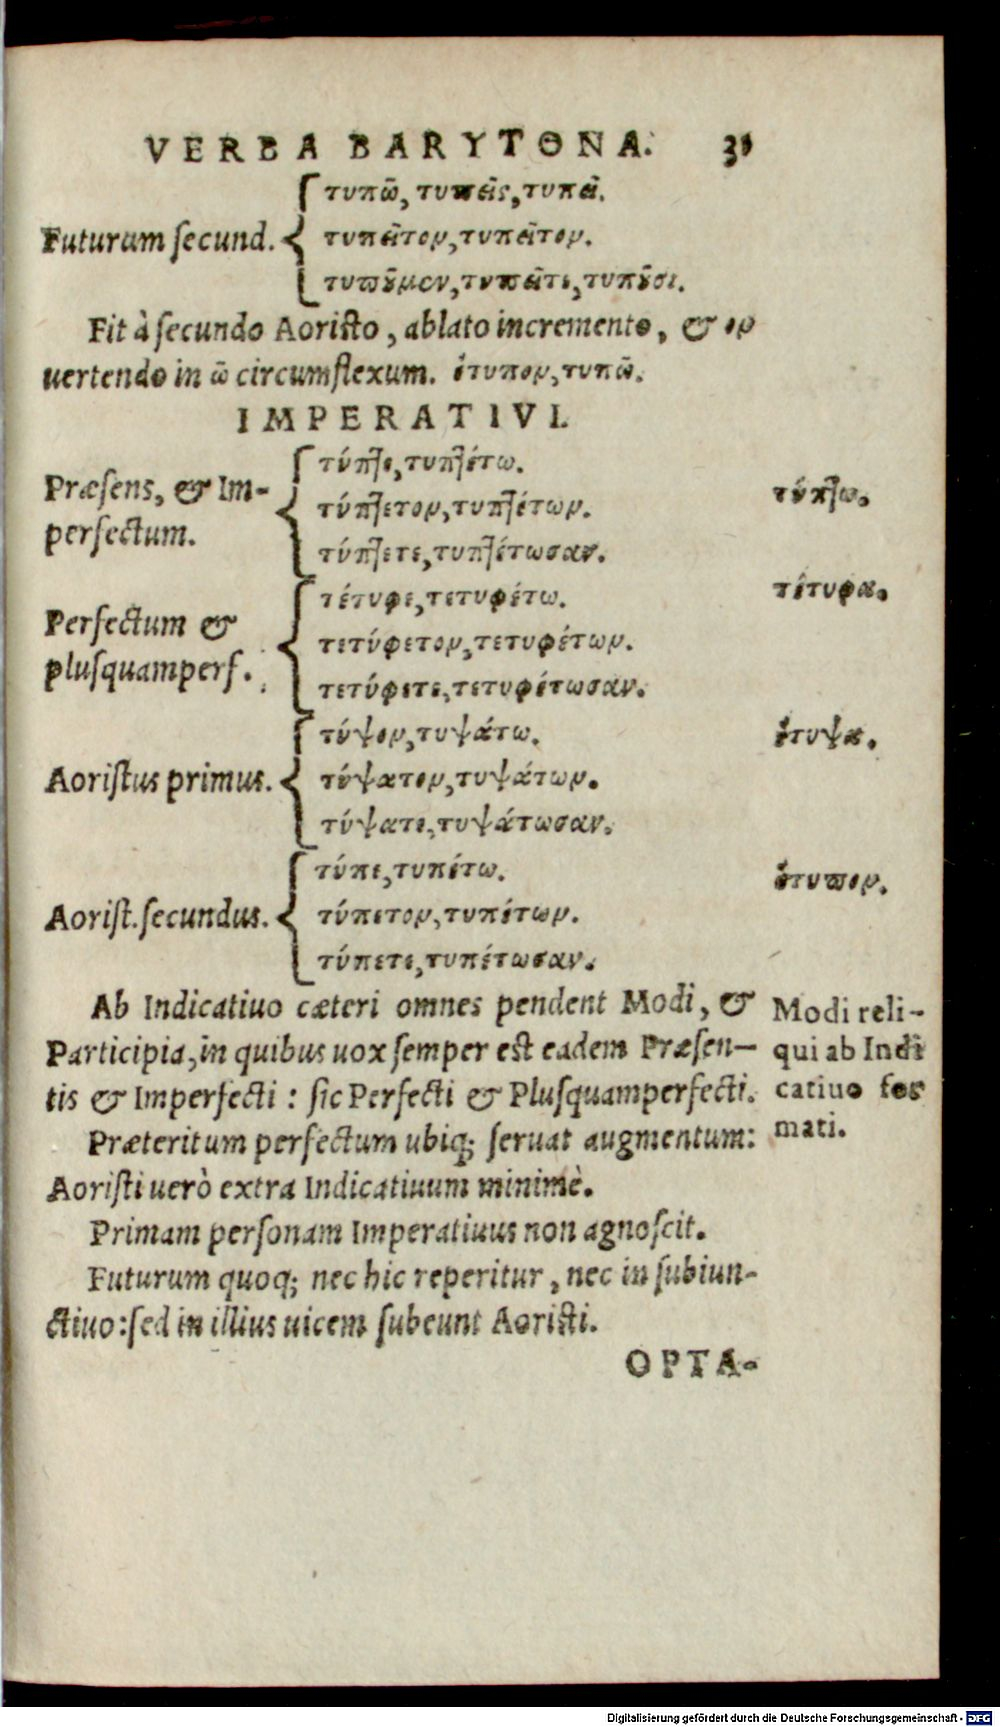 VERBA BARYTONA. 31
τυπῶ, τυπεῖς, τυπεῖ.
Futurum ſecund. τυπεῖτον, τυπεῖτον.
τυποῦμεν, τυπεῖτε, τυποῦσι.
Fit à ſecundo Aoriſto, ablato incremento, & ον
uertendo in ῶ circumflexum. ἔτυπον, τυπῶ.
IMPERATIVI.
τύπτε, τυπτέτω.
Præſens, & Im-
τύπτετον, τυπτέτων.
τύπτω.
perfectum.
τύπτετε, τυπτέτωσαν.
τέτυφε, τετυφέτω.
τέτυφα.
Perfectum &
τετύφετον, τετυφέτων.
pluſquamperf.
τετύφετε, τετυφέτωσαν.
τύψον, τυψάτω.
ἔτυψα.
Aoriſtus primus. τύψατον, τυψάτων.
τύψατε, τυψάτωσαν.
τύπε, τυπέτω.
ἔτυπον.
Aoriſt. ſecundus. τύπετον, τυπέτων.
τύπετε, τυπέτωσαν.
Ab Indicatiuo cæteri omnes pendent Modi, &
Participia, in quibus uox ſemper eſt eadem Præſen-
tis & Imperfecti : ſic Perfecti & Pluſquamperfecti.
Modi reli-
qui ab Indi
catiuo for
mati.
Præteritum perfectum ubiq; ſeruat augmentum:
Aoriſti uerò extra Indicatiuum minimè.
Primam perſonam Imperatiuus non agnoſcit.
Futurum quoq; nec hic reperitur, nec in ſubiun-
ctiuo: ſed in illius uicem ſubeunt Aoriſti.
OPTA-
Digitalisierung gefördert durch die Deutsche Forschungsgemeinschaft - DFG